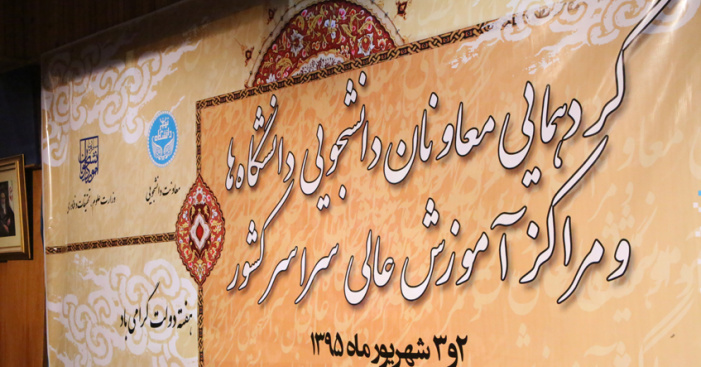 گردهمایی معاونان دانشجویی دانشگاه‌ها
و مراکز آموزش عالی سراسر کشور
۲و۳ شهریور ماه ۱۳۹۵
معاونت دانشجویی
وزارت علوم، تحقیقات و فناوری
هفته دولت گرامی باد